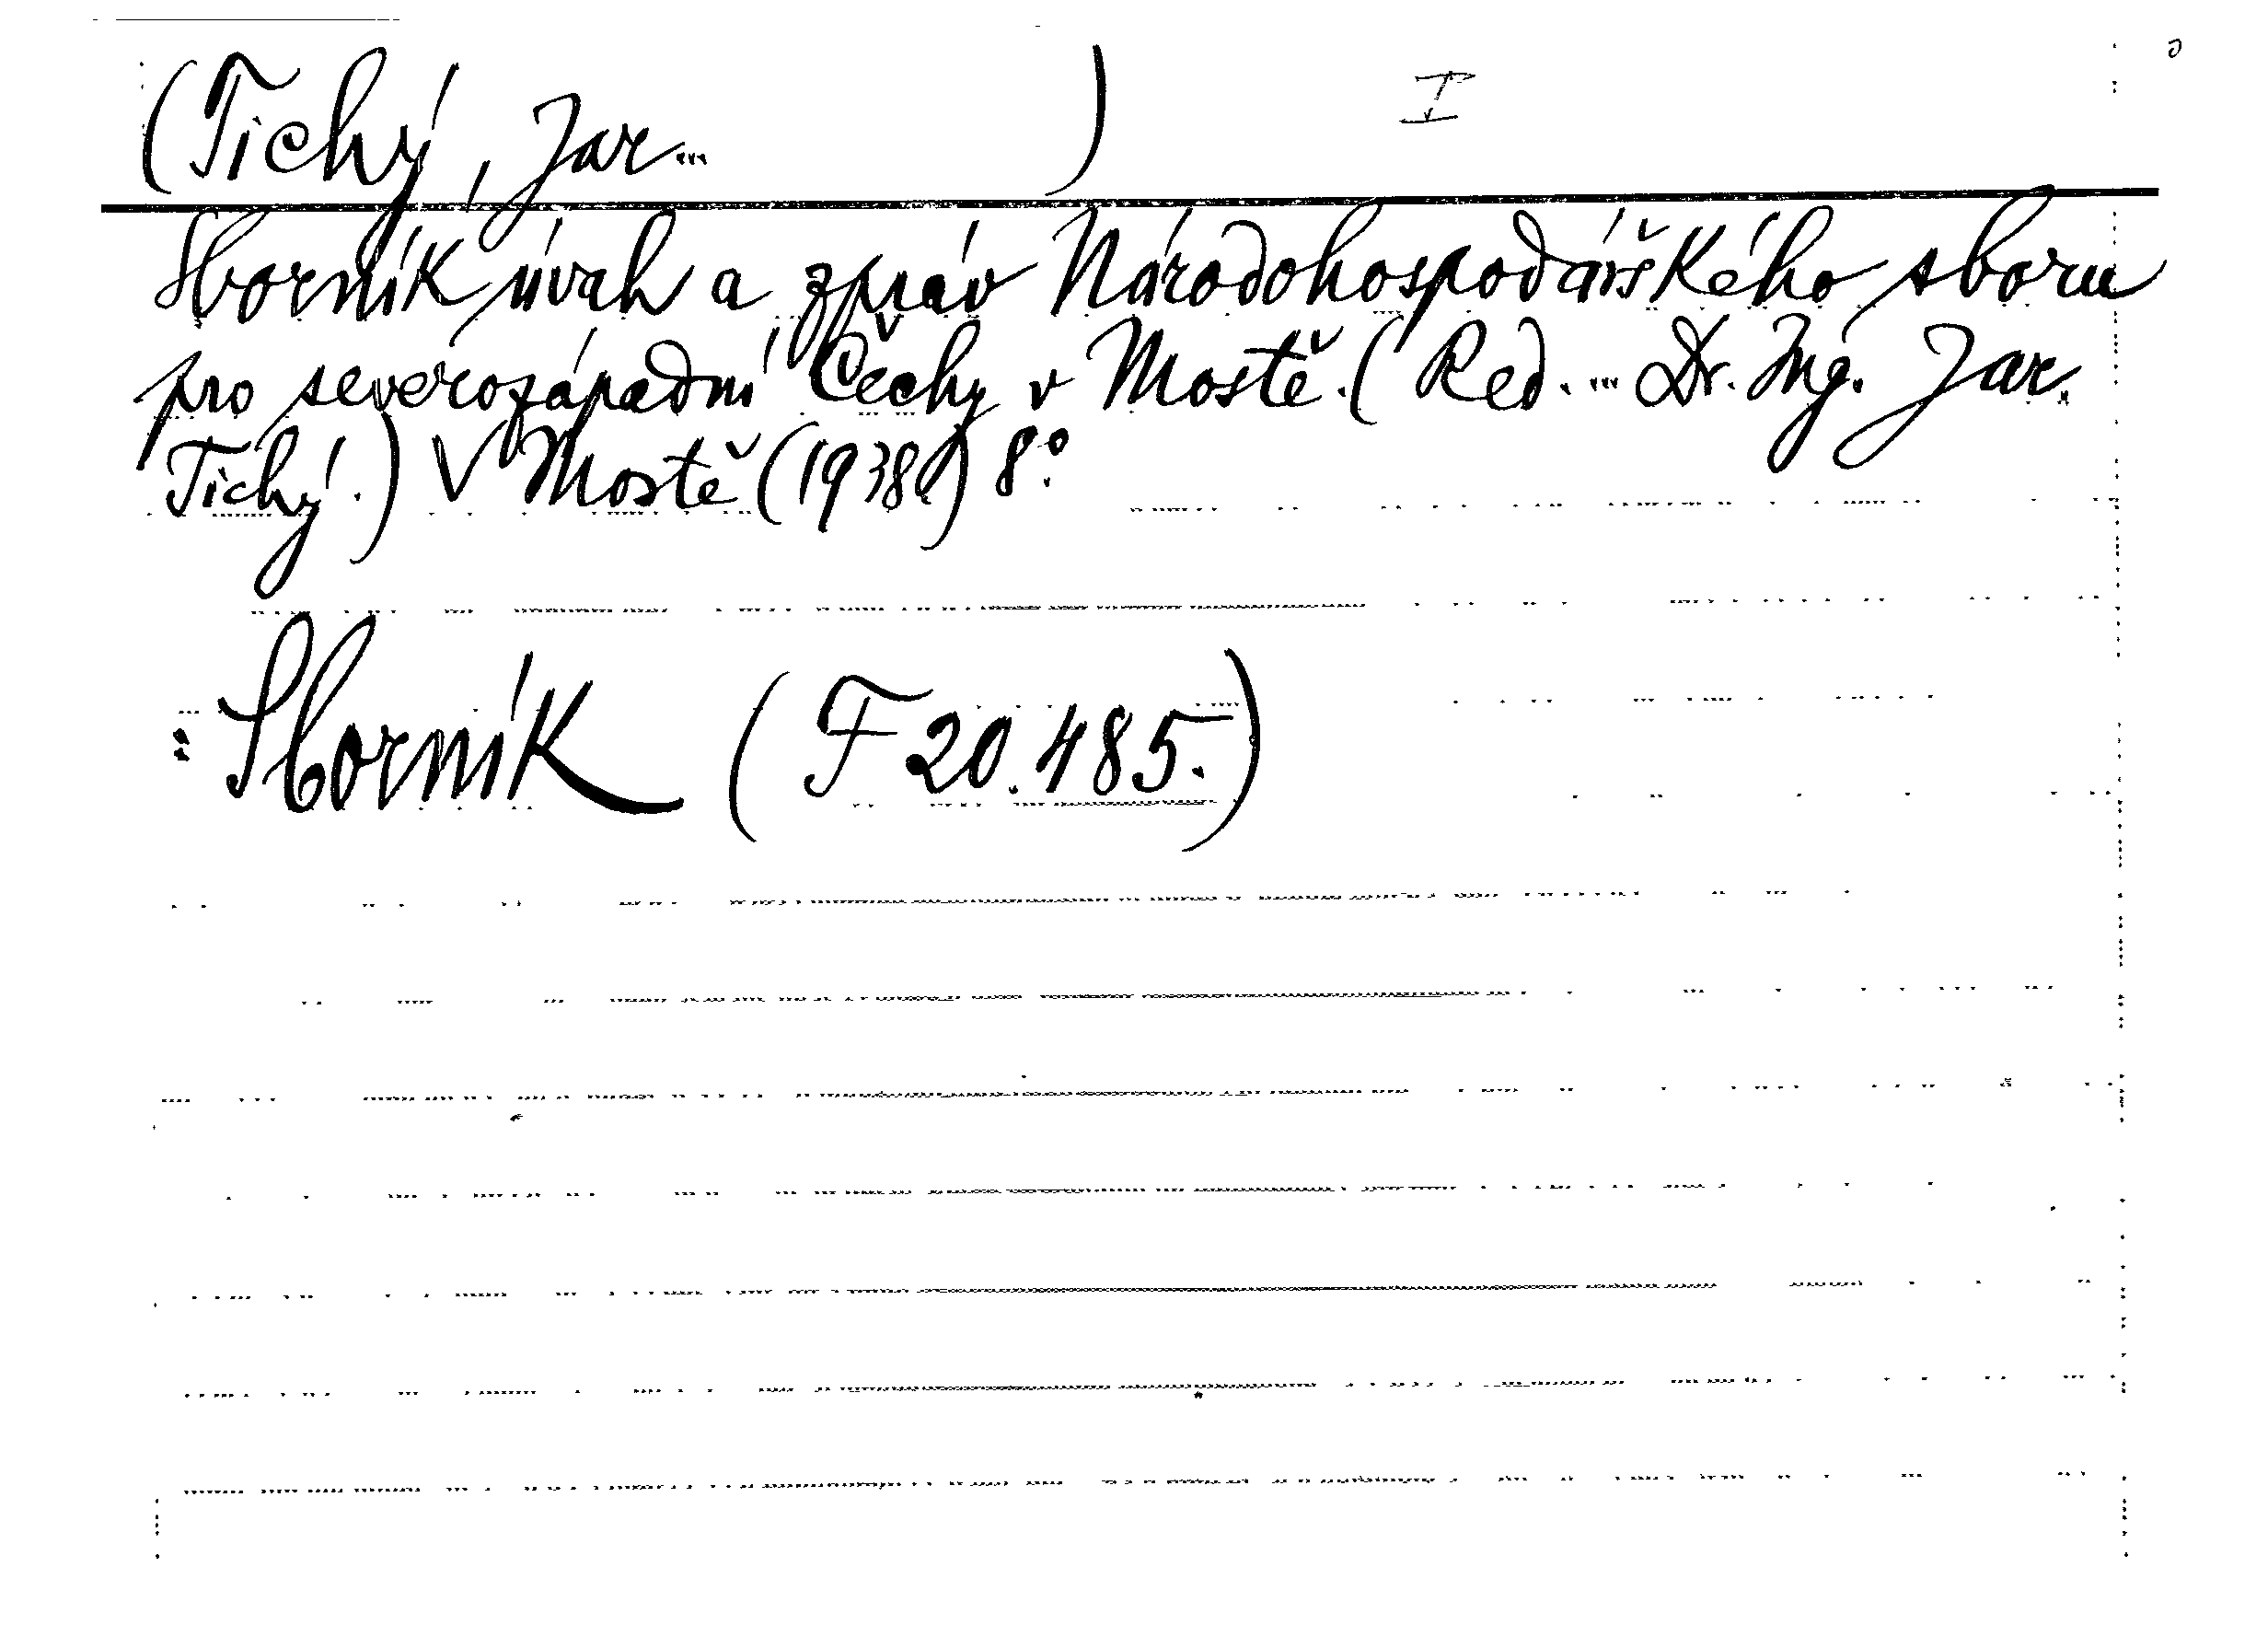 (Tichý, Jar... ) I
Sborník úvah a zpráv Národohospodářského sboru
pro severozápadní Čechy v Mostě. (Red. ... Dr. Ing. Jar.
Tichý.) V Mostě (1938) 8º.
: Sborník (F 20.485.)